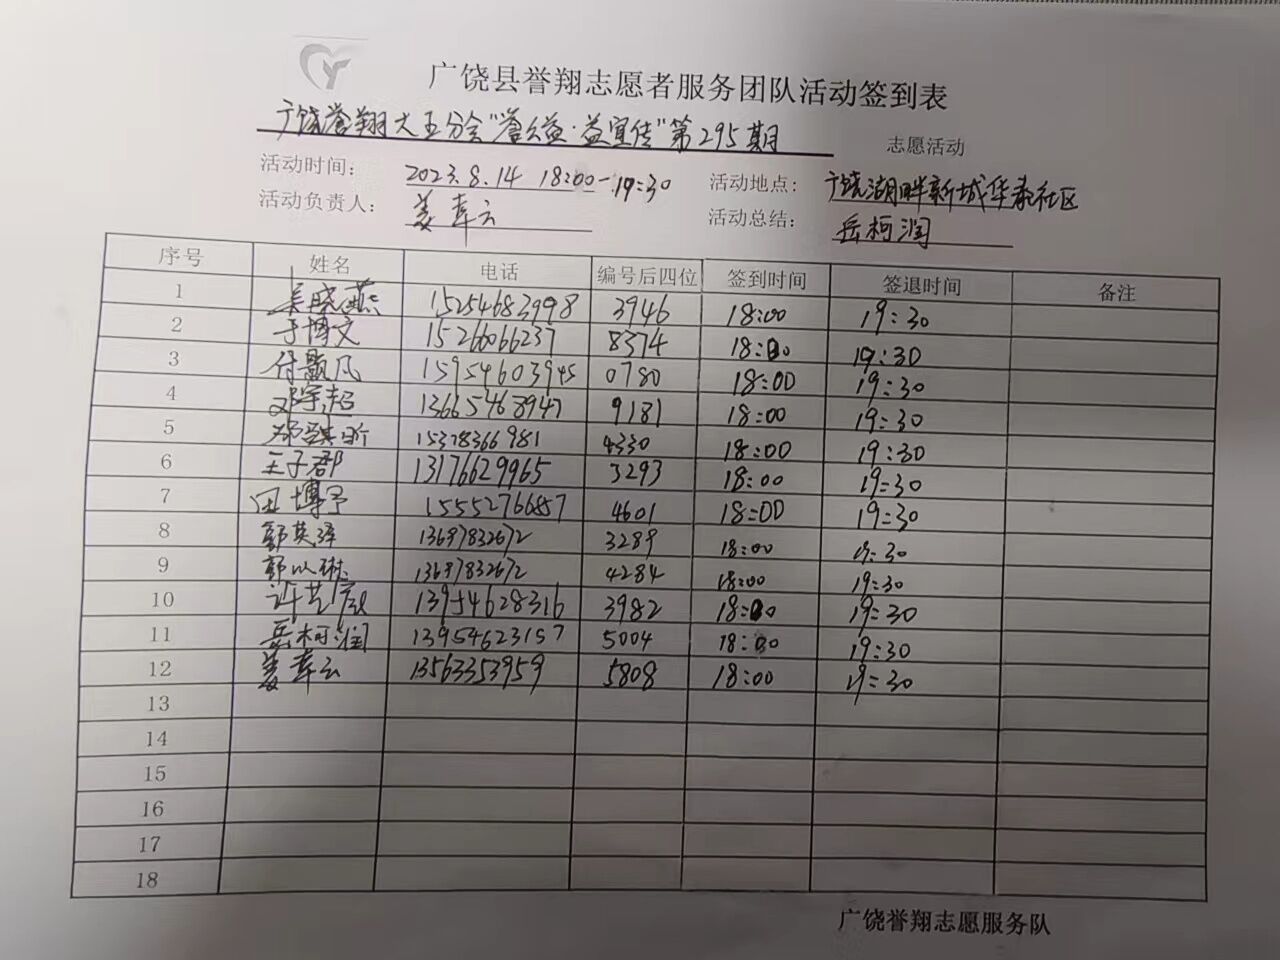 广饶县誉翔志愿者服务团队活动签到表
广饶誉翔大王分会"誉公益·益宣传"第295期 志愿活动
活动时间: 2023.8.14 18:00-19:30 活动地点: 广饶湖畔新城华泰社区
活动负责人: 姜春云 活动总结: 岳柯润
序号 姓名 电话 编号后四位 签到时间 签退时间 备注
1 吴晓燕 15254683998 3946 18:00 19:30
2 于博文 15266066237 8374 18:00 19:30
3 付颢凡 15954603945 0780 18:00 19:30
4 邓宇超 13665468947 9181 18:00 19:30
5 15378366981 4330 18:00 19:30
6 王子郡 13176629965 3293 18:00 19:30
7 田博予 15552766857 4601 18:00 19:30
8 郭英泽 13697832672 3289 18:00 19:30
9 郭以琳 13697832672 4284 18:00 19:30
10 许艺宸 13954628316 3982 18:00 19:30
11 岳柯润 13954623157 5004 18:00 19:30
12 姜春云 13563353959 5808 18:00 19:30
13
14
15
16
17
18
广饶誉翔志愿服务队